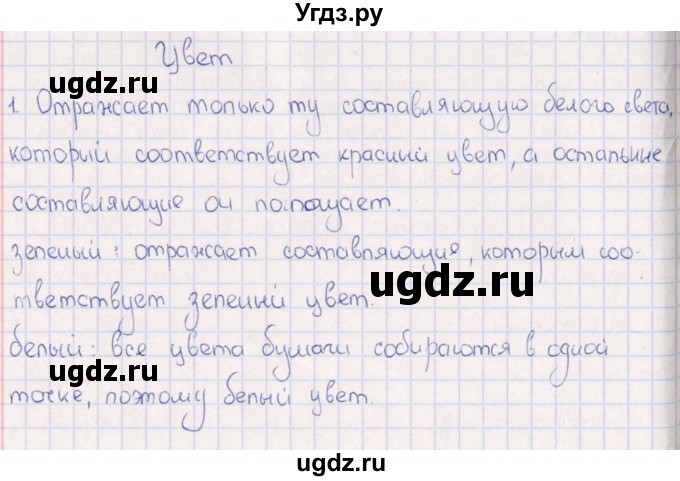 Угдз.ру
Цвет
1. Отражает только ту составляющую белого света,
который соответствует красный цвет, а остальные
составляющие он поглощает.
зеленый: отражает составляющие, которым соо-
тветствует зеленый цвет.
белый: все цвета бумаги собираются в одной
точке, поэтому белый цвет.
ugdz.ru
ugdz.ru
ugdz.ru
ugdz.ru
ugdz.ru
ugdz.ru